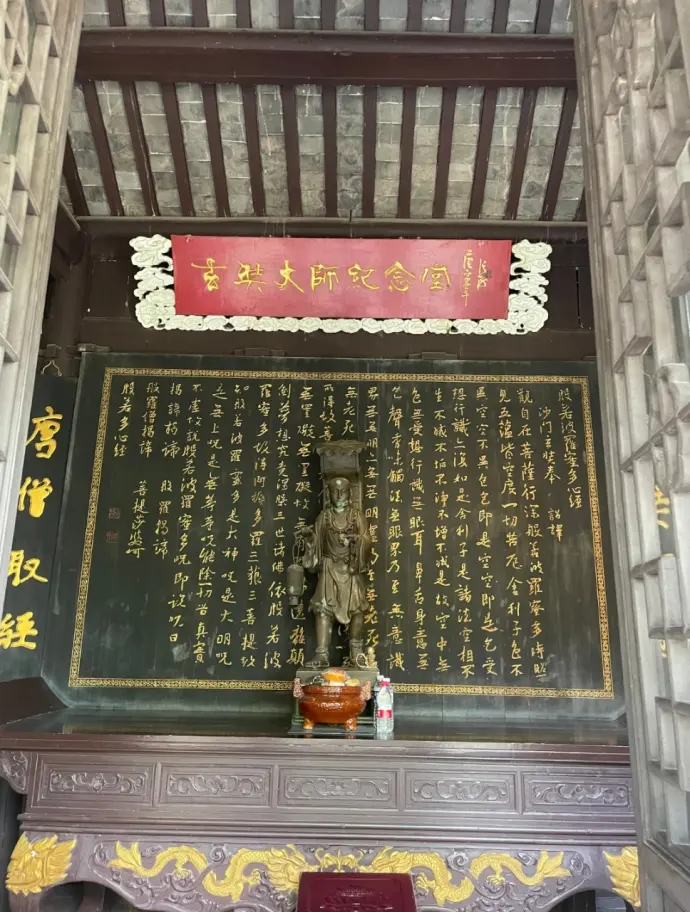 玄奘大師紀念堂
般若波羅蜜多心經
沙門玄奘奉 詔譯
觀自在菩薩行深般若波羅蜜多時照
見五蘊皆空度一切苦厄舍利子色不
異空空不異色色即是空空即是色受
想行識亦復如是舍利子是諸法空相不
生不滅不垢不淨不增不減是故空中無
色無受想行識無眼耳鼻舌身意無
色聲香味觸法無眼界乃至無意識
界無無明亦無無明盡乃至無老死
無老死
所得故菩
無罣礙無罣礙故無遠離顛
倒夢想究竟涅槃三世諸佛依般若波
羅蜜多故得阿耨多羅三藐三菩提故
知般若波羅蜜多是大神咒是大明咒
是無上咒是無等等咒能除一切苦真實
不虛故說般若波羅蜜多咒即說咒曰
揭諦揭諦 般羅揭諦
般羅僧揭諦 菩提莎婆訶
般若多心經
唐僧取經